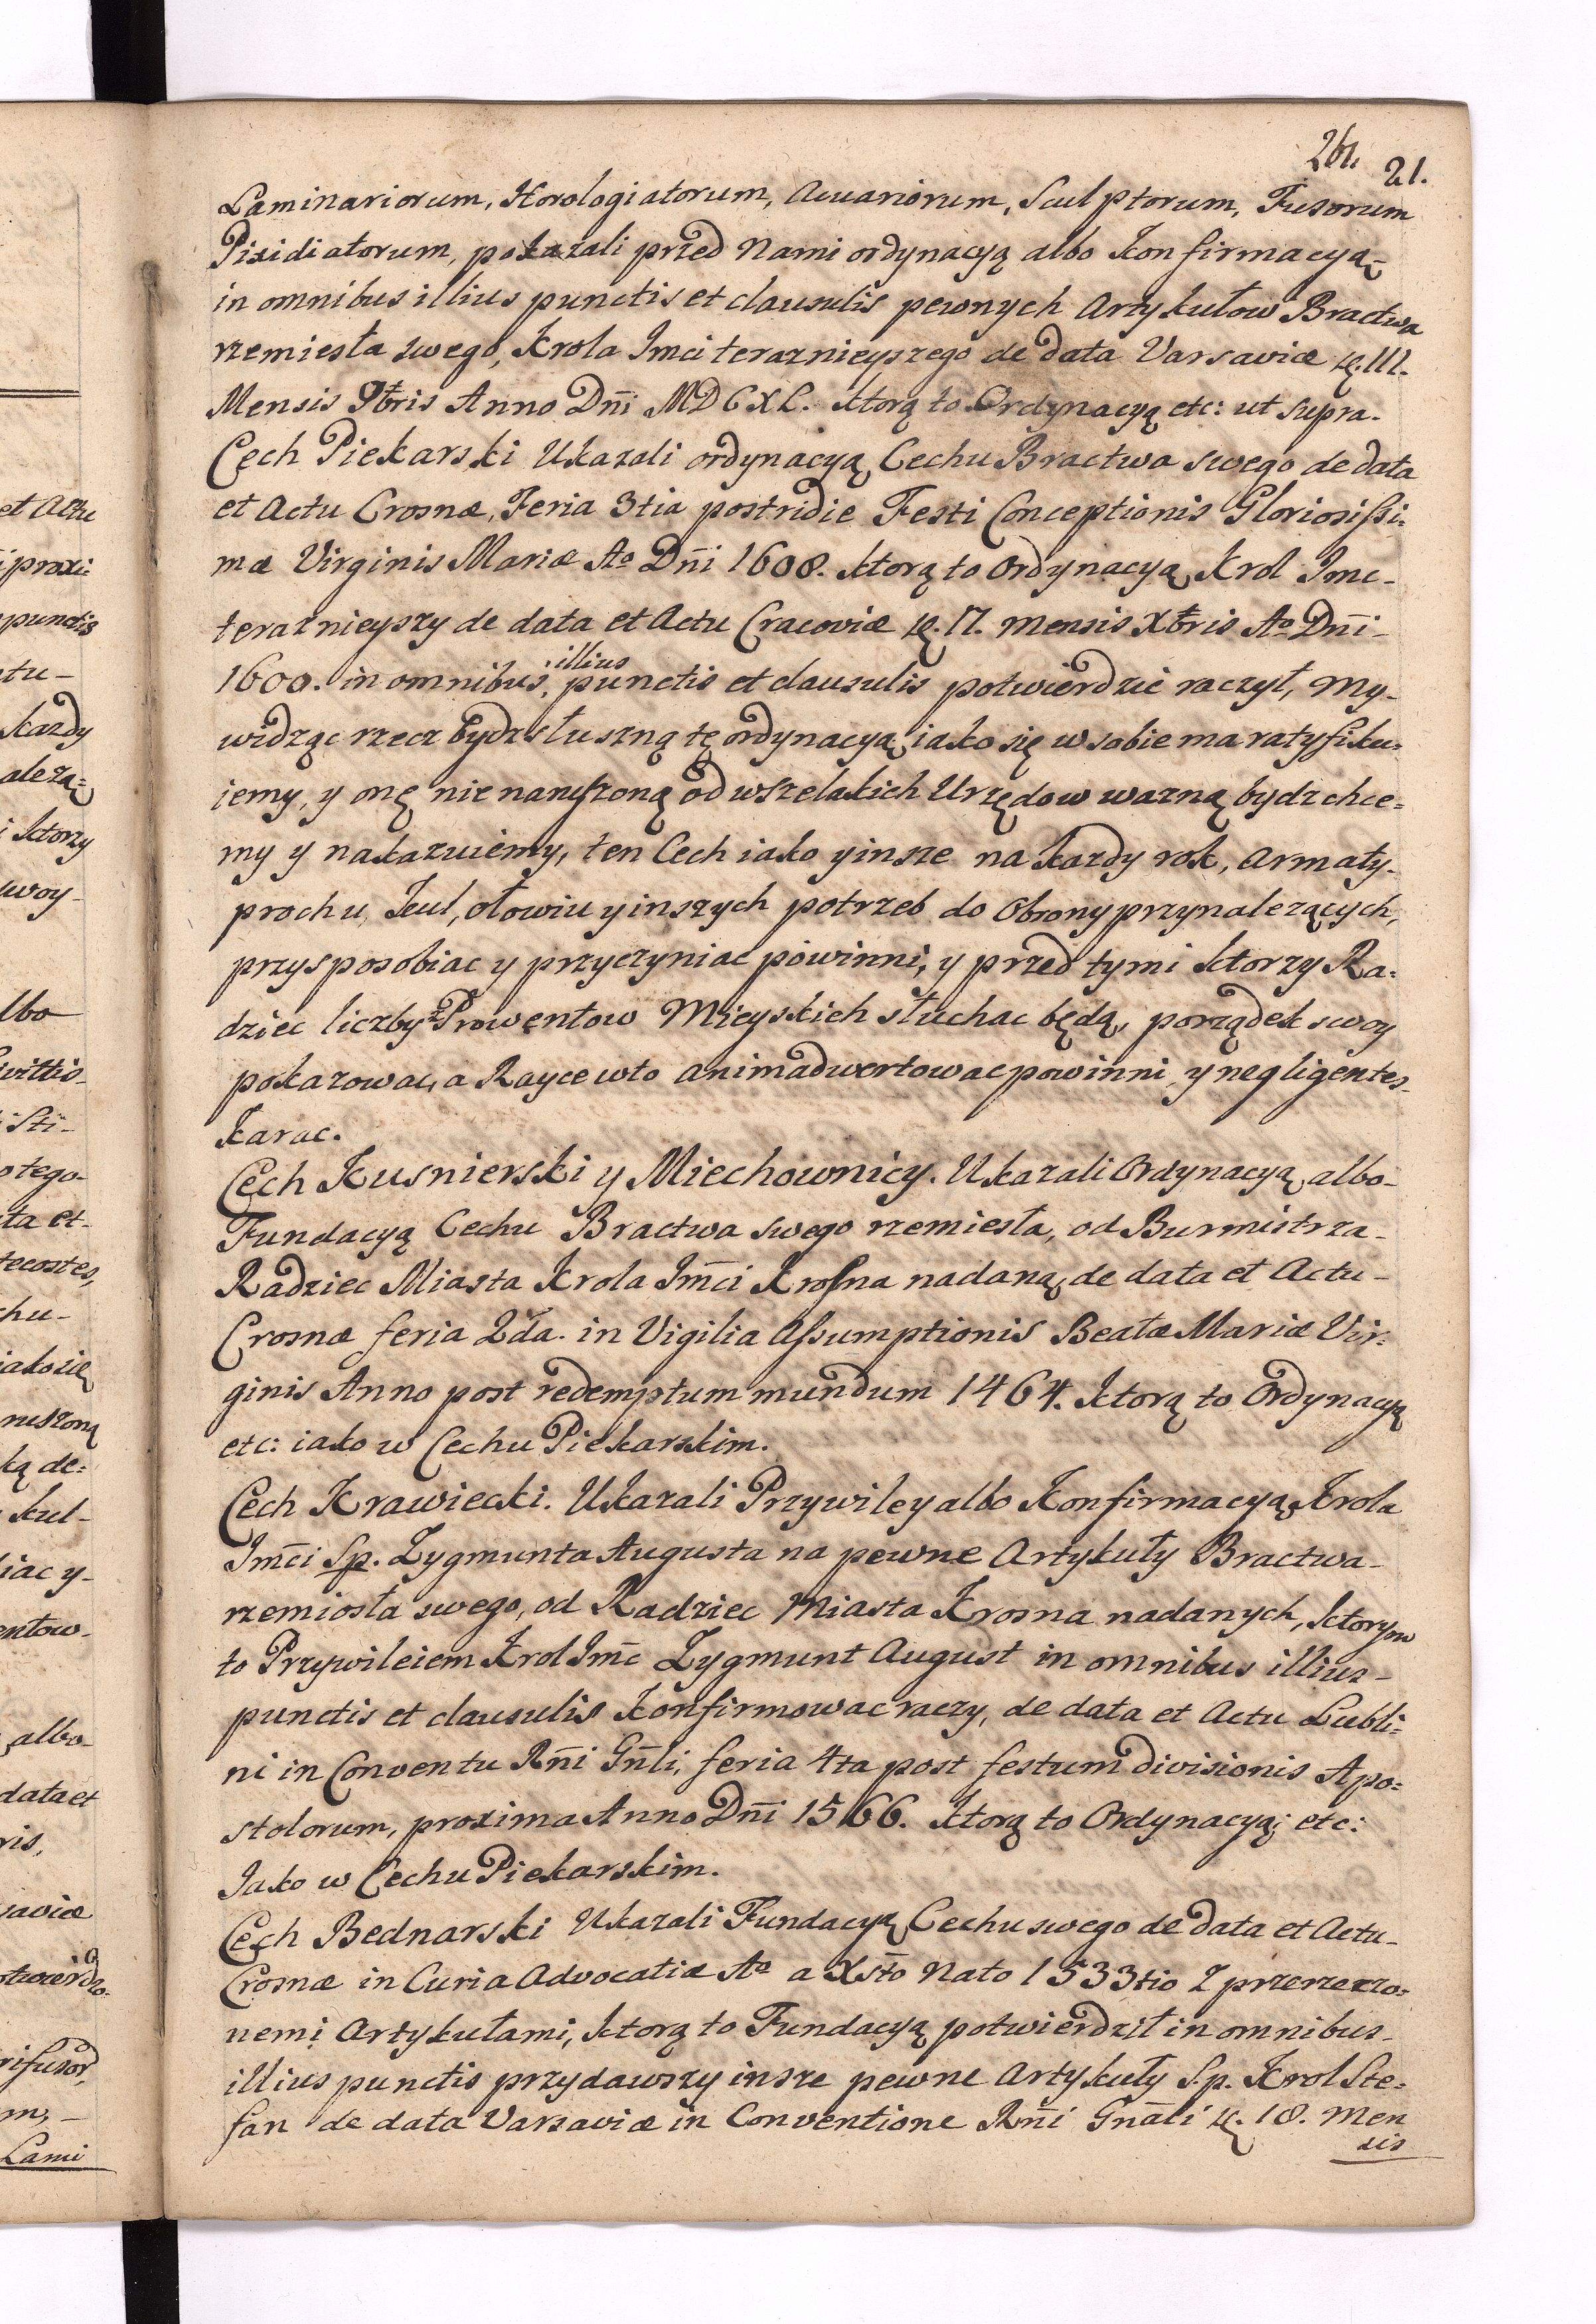 261. 21.
Laminariorum, Horologiatorum, Acuariorum, Sculptorum, Fusorum
Pixidiatorum, pokazali przed Nami ordynacyą albo Konfirmacyą
in omnibus illius punctis et clausulis pewnych Artykułow Bractwa
rzemiesła swego, Krola Jmci teraznieyszego de data Varsaviæ
Mensis 9bris Anno Dñi MDCXL. ktorą to Ordynacyą etc: ut supra.
Cech Piekarski Ukazali ordynacyą Cechu Bractwa swego de data
et Actu Crosnæ, Feria 3tia postridie Festi Conceptionis Gloriosissi:
mæ Virginis Mariæ Aº Dñi 1608. ktorą to Ordynacyą Krol Jmc-
teraznieyszy de data et Actu Cracoviæ Mensis Xbris Aº Dñi-
in omnibus, illius punctis et clausulis potwierdzić raczył, My-
widząc rzecz bydz słuszną tę ordynacyą iako się w sobie ma ratyfiku:
iemy, y onę nienaruszoną od wszelakich Urzędow wazną bydz chce=
my y nakazuiemy, ten Cech iako y insze na kazdy rok, armaty-
prochu, kul, ołowiu y inszych potrzeb do Obrony przynalezących,
przysposobiac y przyczyniac powinni, y przed tymi ktorzy Ra:
dziec liczby z Prowentow Mieyskich słuchac będą, porządek swoy
pokazowac, a Rayce w to animadwertowac powinni y negligentes-
karac.
Cech Kusnierski y Miechownicy. Ukazali Ordynacyą albo-
Fundacyą Cechu Bractwa swego rzemiesła, od Burmistrza-
Radziec Miasta Krola Jm̃ci Krosna nadaną, de data et Actu-
Crosnæ feria 2da. in Vigilia Assumptionis Beatæ Mariæ Vir:
ginis Anno post redemptum mundum 1464. Ktorą to Ordynacyą
etc: iako w Cechu Piekarskim.
Cech Krawiecki. Ukazali Przywiley albo Konfirmacyą Krola
Jm̃ci Sp. Zygmunta Augusta na pewne Artykuły Bractwa-
rzemiosła swego, od Radziec Miasta Krosna nadanych, ktorym
to Przywileiem Krol Jm̃c Zygmunt August in omnibus illius-
punctis et clausulis Konfirmowac raczy, de data et Actu Lubli:
ni in Conventu Rñi Gñli, feria 4ta post festum divisionis Apo=
stolorum, proxima Anno Dñi 1566. Ktorą to Ordynacyą; etc:
Jako w Cechu Piekarskim.
Cech Bednarski Ukazali Fundacyą Cechu swego de data et Actu-
Crosnæ in Curia Advocatiæ Aº a Xsto Nato 1533tio Z przerzeczo=
nemi Artykułami, ktorą to Fundacyą potwierdził in omnibus-
illius punctis przydawszy insze pewne Artykuły S.p. Krol Ste=
fan de data Varsaviæ in Conventione Rñi Gñali 18. Men
sis